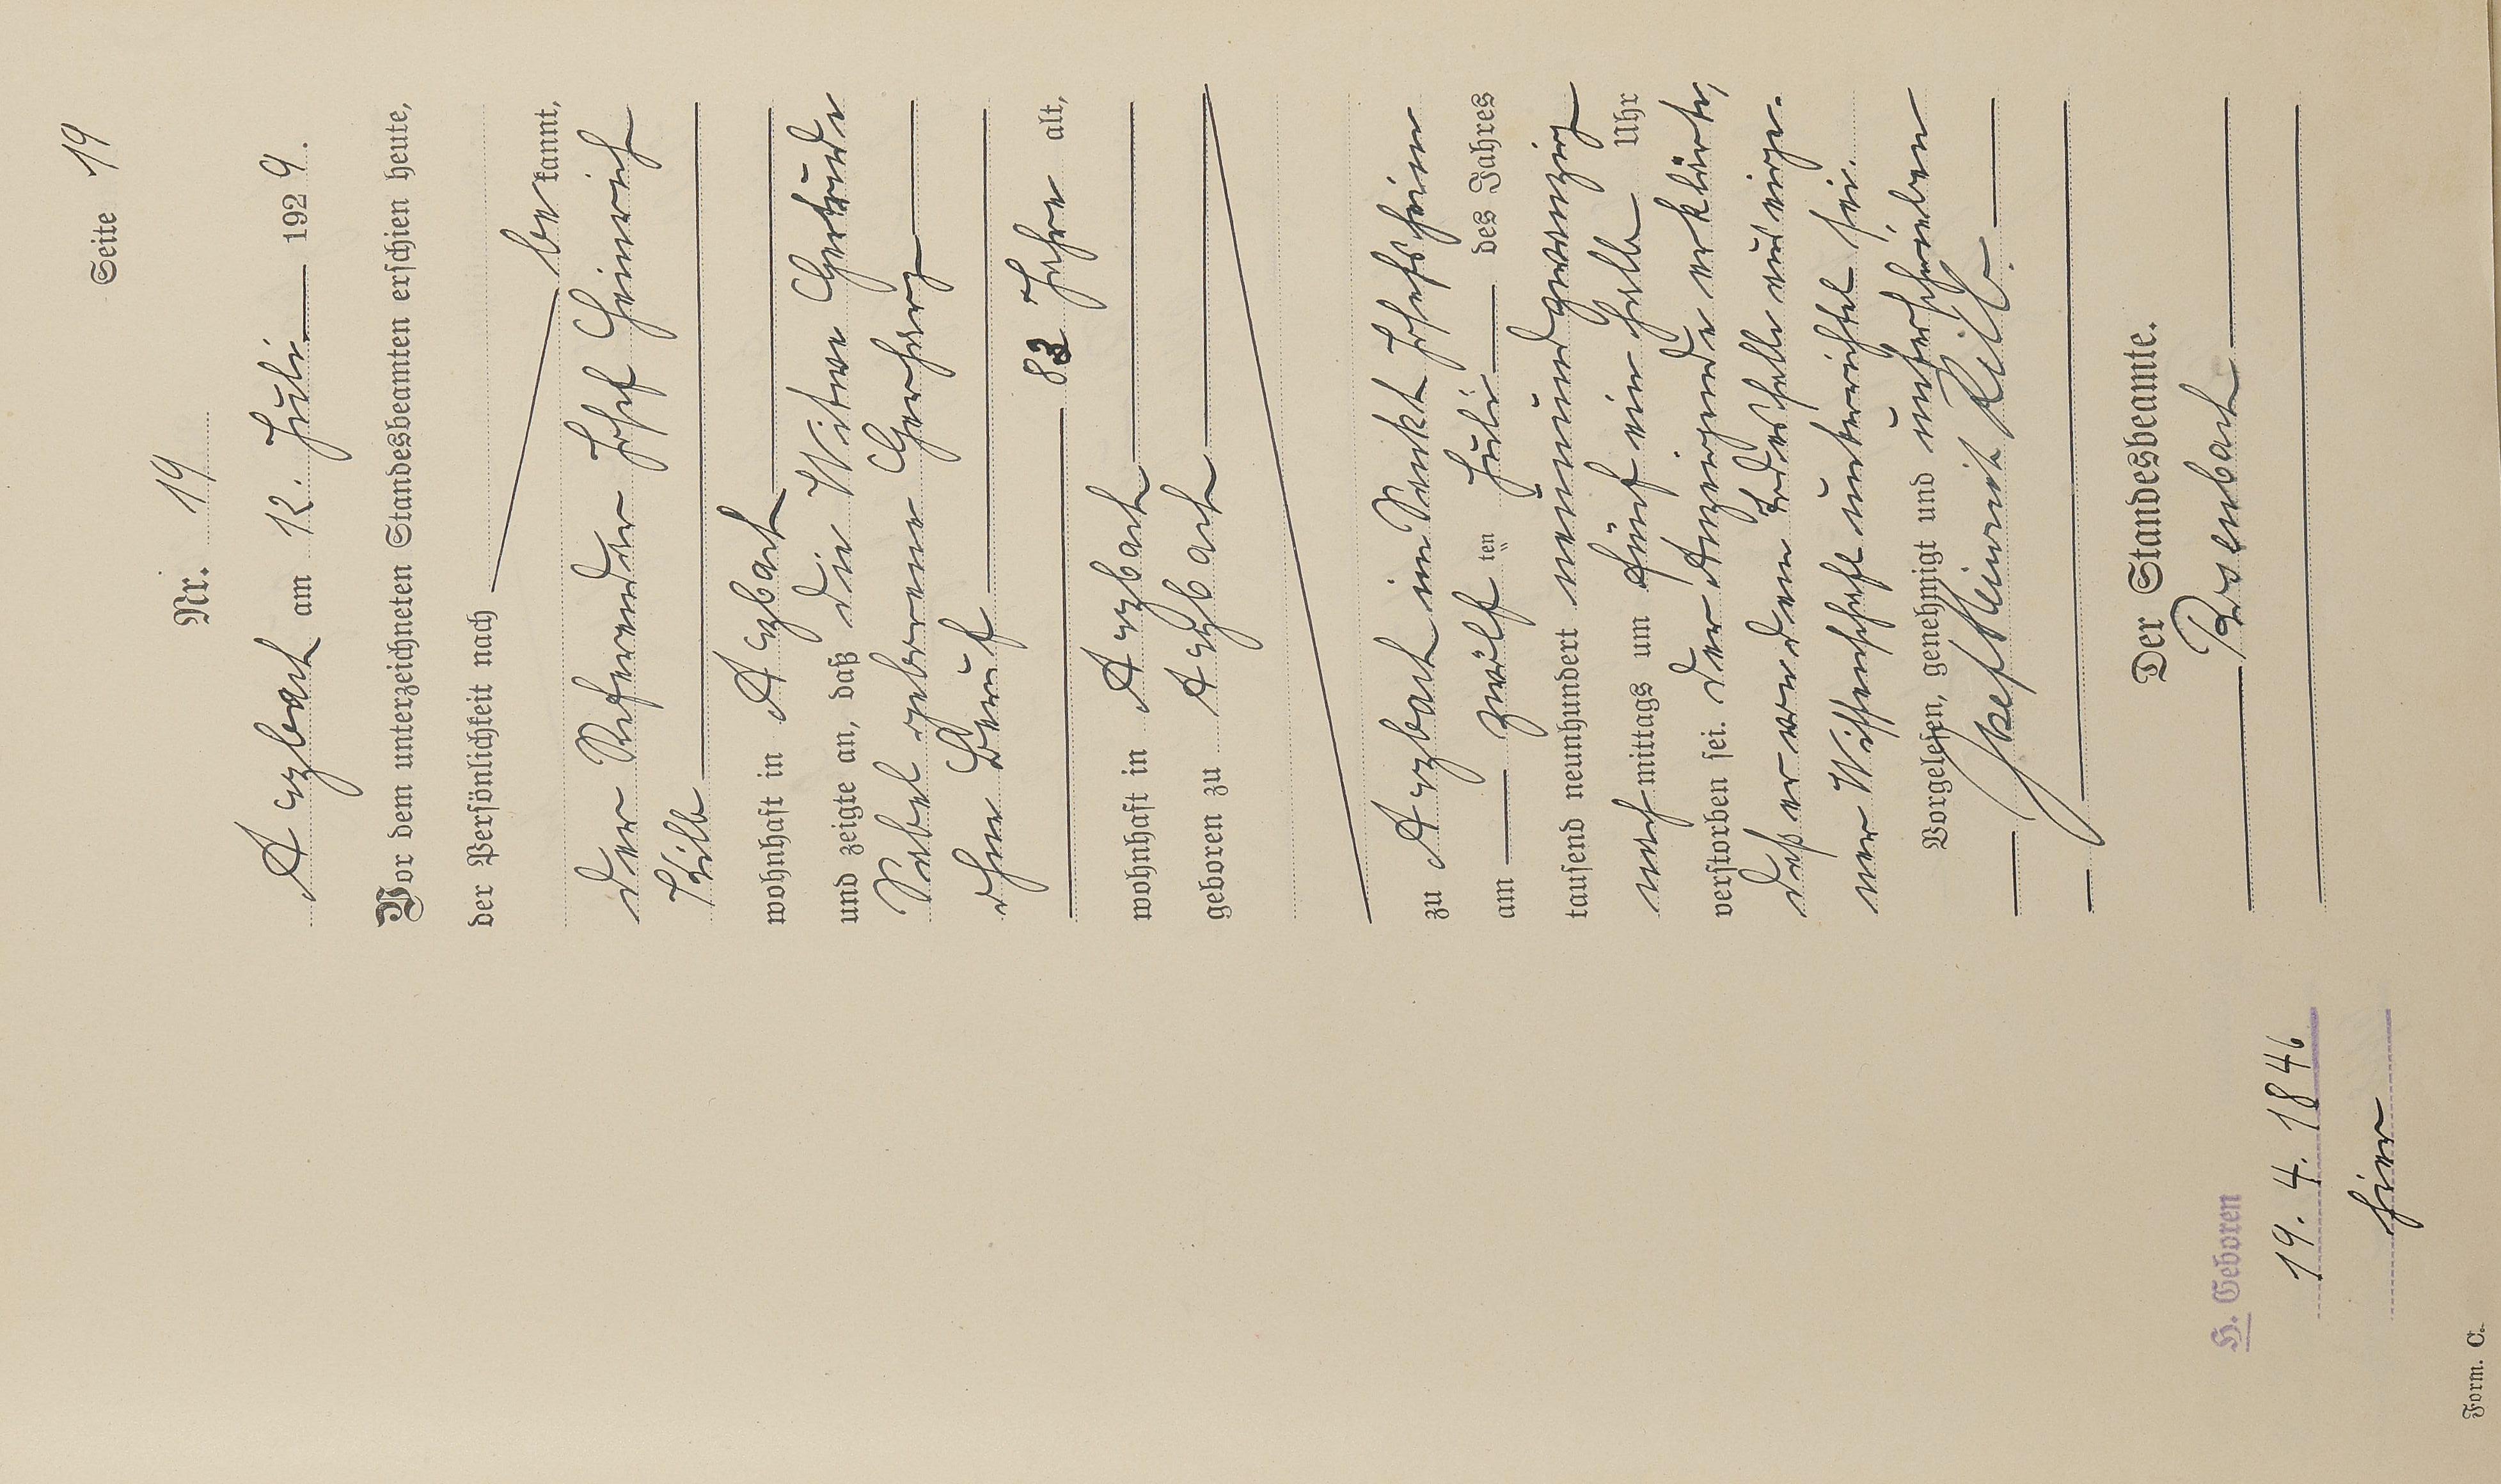 Seite 19
Nr. 19
Arzbach am 12. Juli 1929.
Vor dem unterzeichneten Standesbeamten erschien heute,
der Persönlichkeit nach
be kannt,
der Referendar Josef Heinrich
Kilb
wohnhaft in Arzbach
und zeigte an, daß die Witwe Gertrude
Sabel geborene Gerharz
ohne Beruf
83 Jahre alt,
wohnhaft in Arzbach
geboren zu Arzbach
zu Arzbach im Sankt Josefsheim
am zwölf ten Juli des Jahres
tausend neunhundert neunundzwanzig
nach mittags um fünf ein halb Uhr
verstorben sei. Der Anzeigende erklärte,
daß er von dem Todesfalle aus eige-
ner Wissenschaft unterrichtet sei.
Vorgelesen, genehmigt und unterschrieben
Josef Heinrich Kilb.
Der Standesbeamte.
H. Geboren
19. 4. 1846
hier
Form. C.